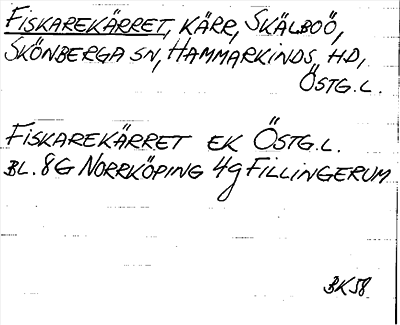 FISKAREKÄRRET, KÄRR, SKÄLBOÖ,
SKÖNBERGA SN, HAMMARKINDS HD,
ÖSTG.L.
FISKAREKÄRRET EK ÖSTG.L.
BL. 8G NORRKÖPING 4g FILLINGERUM
BK58